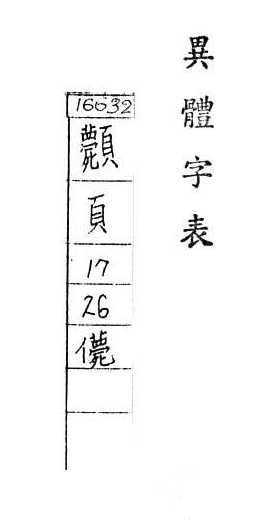 異體字表
16032
頁
17
26